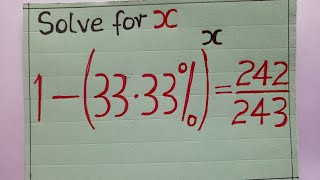 Solve for x
1-(33.33%)^x = 242/243